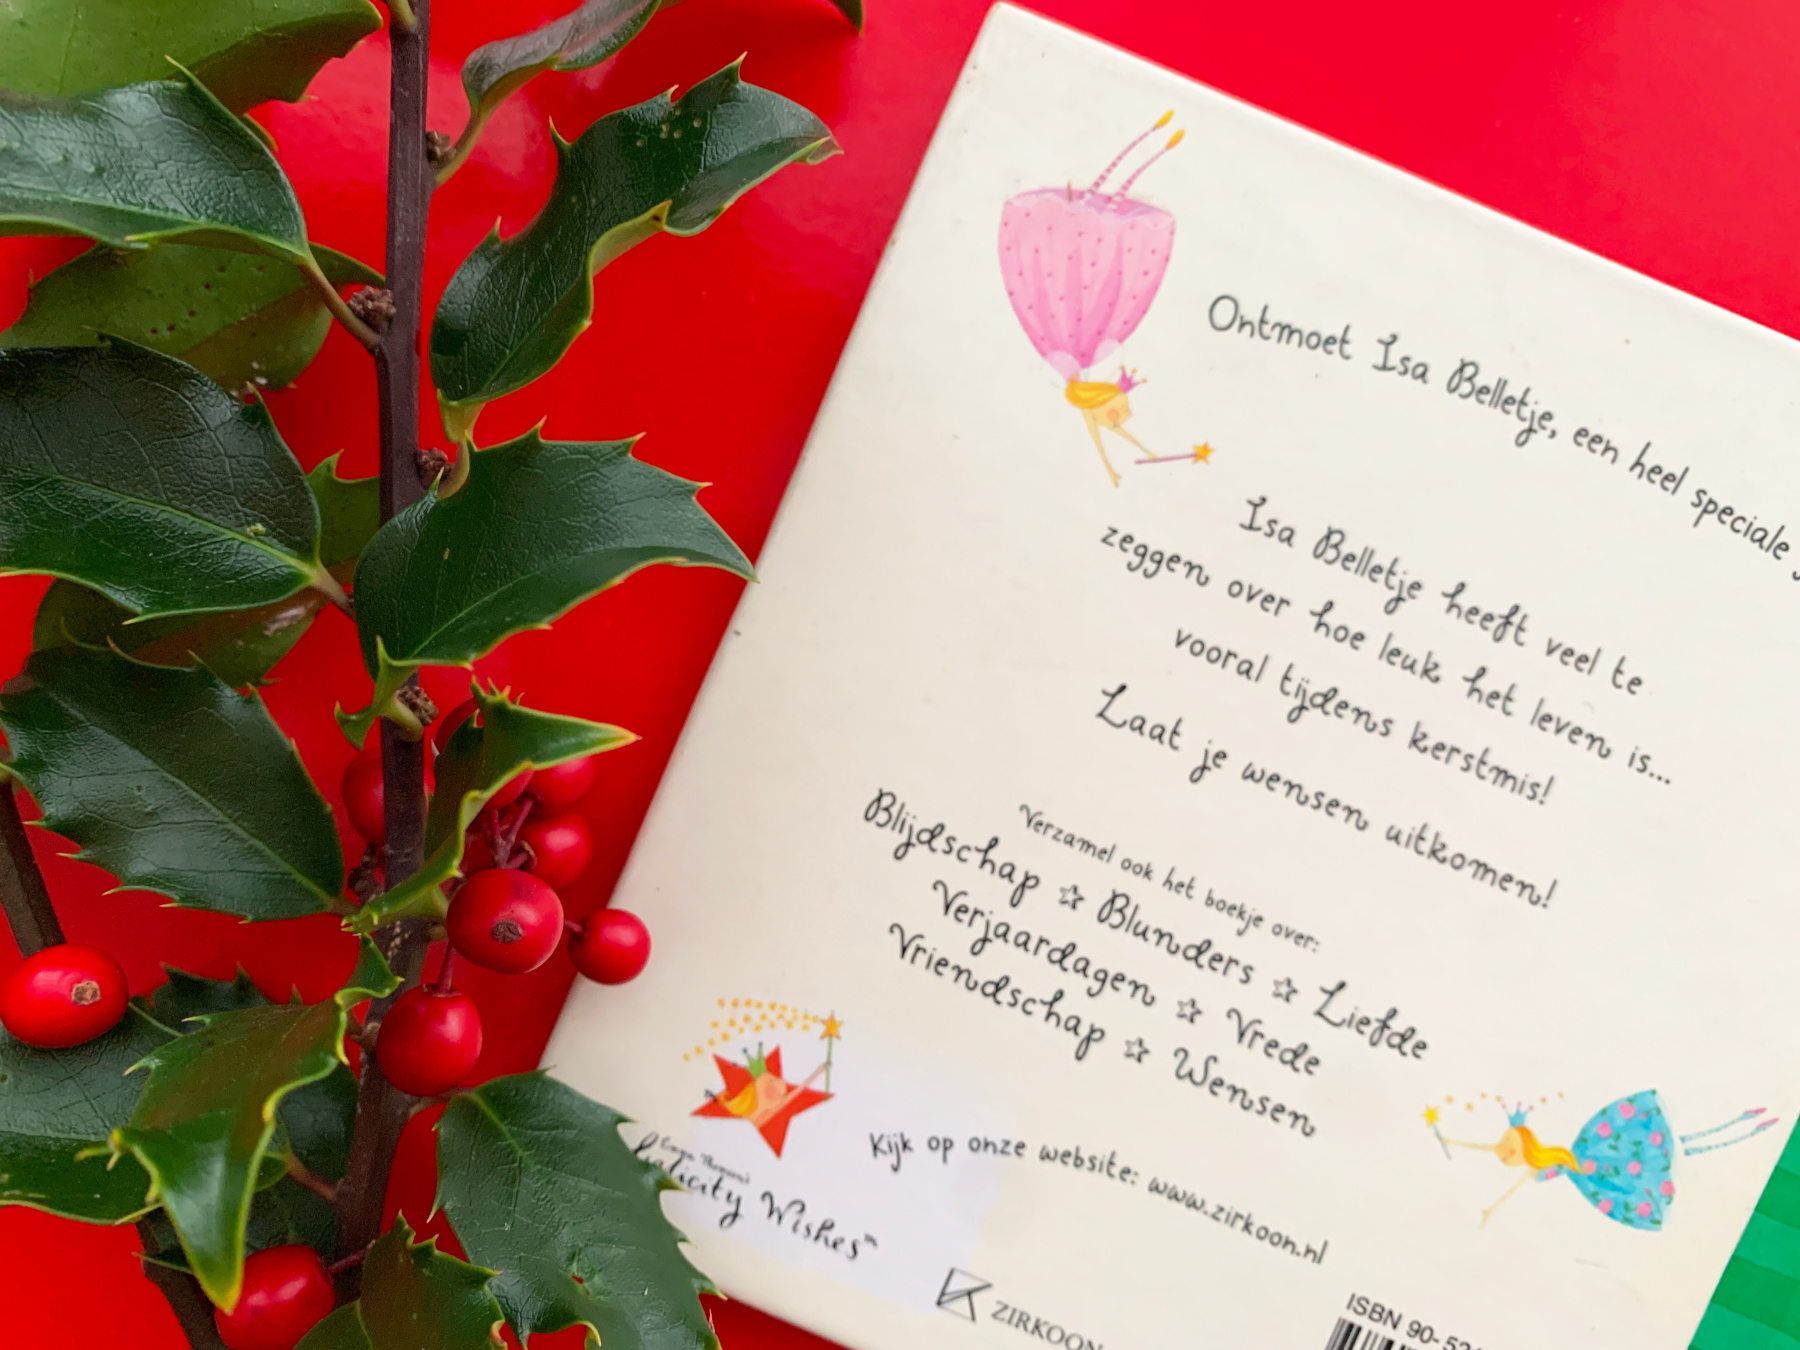 Ontmoet Isa Belletje, een heel speciale
Isa Belletje heeft veel te
zeggen over hoe leuk het leven is...
vooral tijdens kerstmis!
Laat je wensen uitkomen!
Verzamel ook het boekje over:
Blijdschap ☆ Blunders ☆ Liefde
Verjaardagen ☆ Vrede
Vriendschap ☆ Wensen
Kijk op onze website: www.zirkoon.nl
Wishes™
ZIRKOON
ISBN 90-